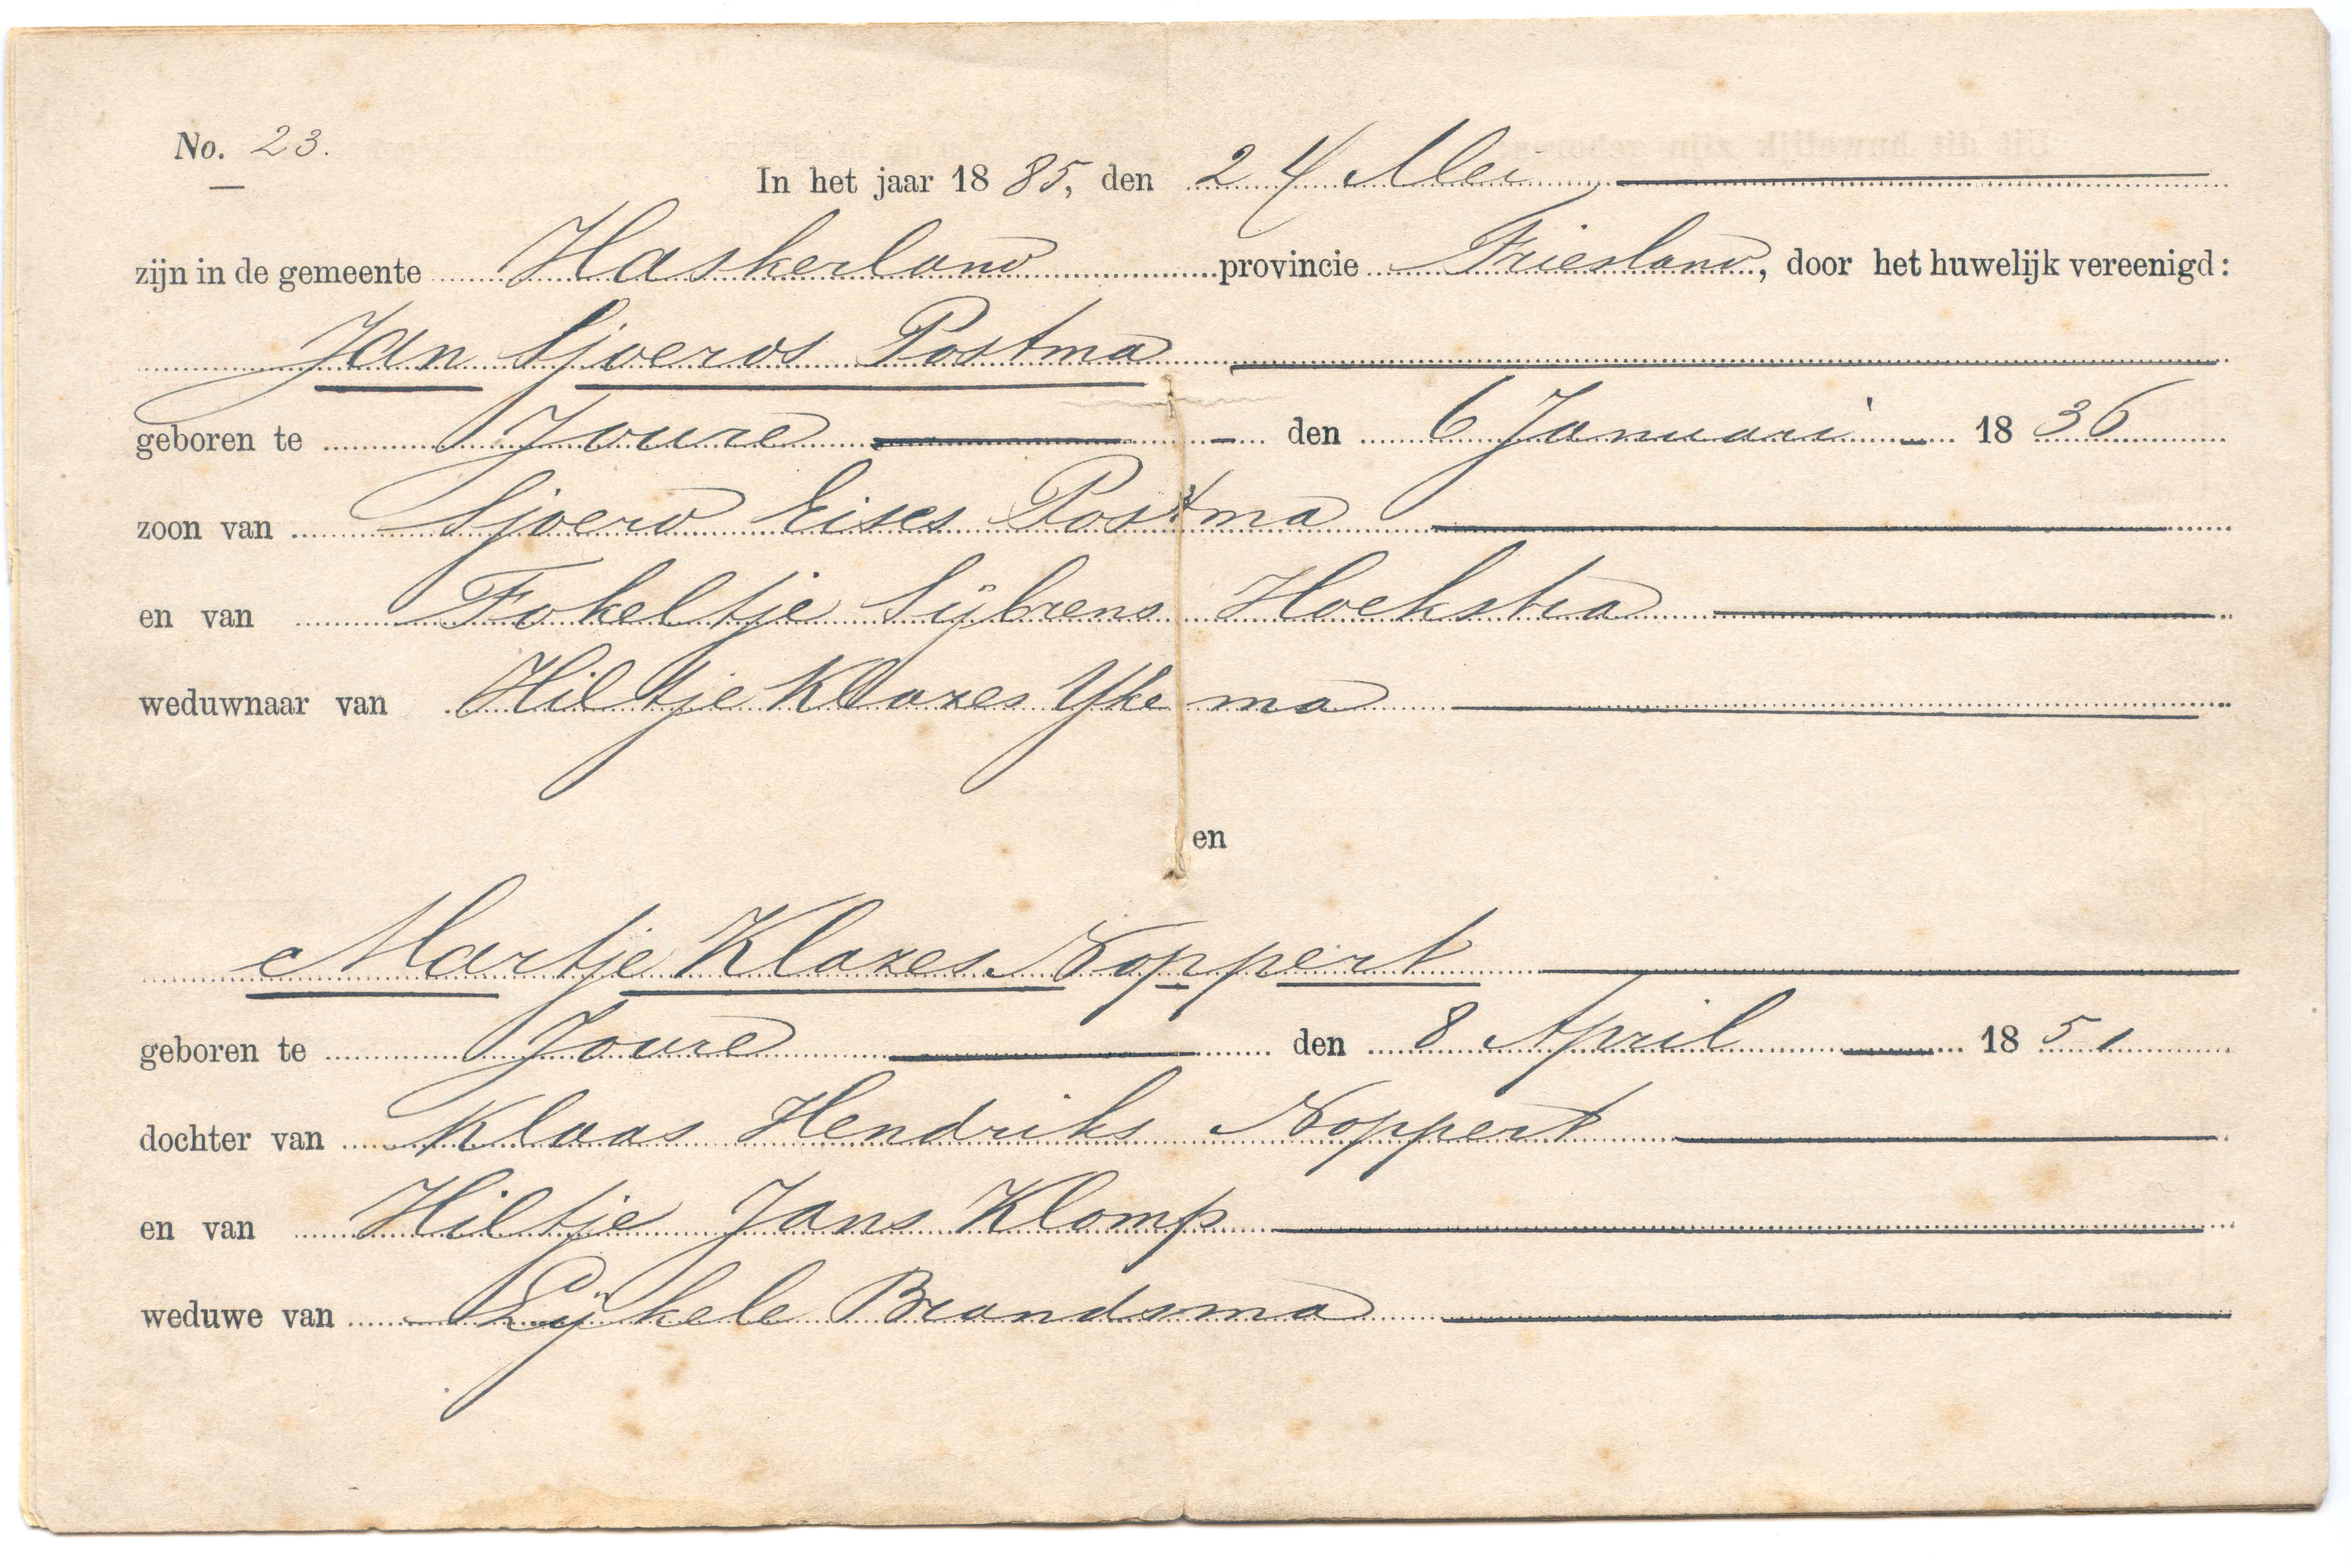 No. 23.
In het jaar 18 85, den 24 Mei
zijn in de gemeente Haskerland provincie Friesland, door het huwelijk vereenigd:
Jan Sjoerds Postma
geboren te Joure den 6 Januari 18 36
zoon van Sjoerd Eises Postma
en van Fokeltje Sijbrens Hoekstra
weduwnaar van Hiltje Klazes Ykema
en
Martje Klazes Noppert
geboren te Joure den 8 April 18 51
dochter van Klaas Hendriks Noppert
en van Hiltje Jans Klomp
weduwe van Brandsma